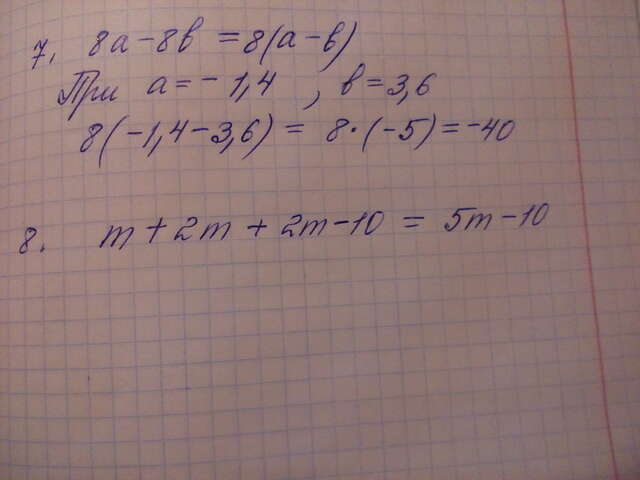 7. 8a-8b = 8(a-b)
При a = -1,4 , b = 3,6
8(-1,4-3,6) = 8·(-5) = -40
8. m + 2m + 2m-10 = 5m-10